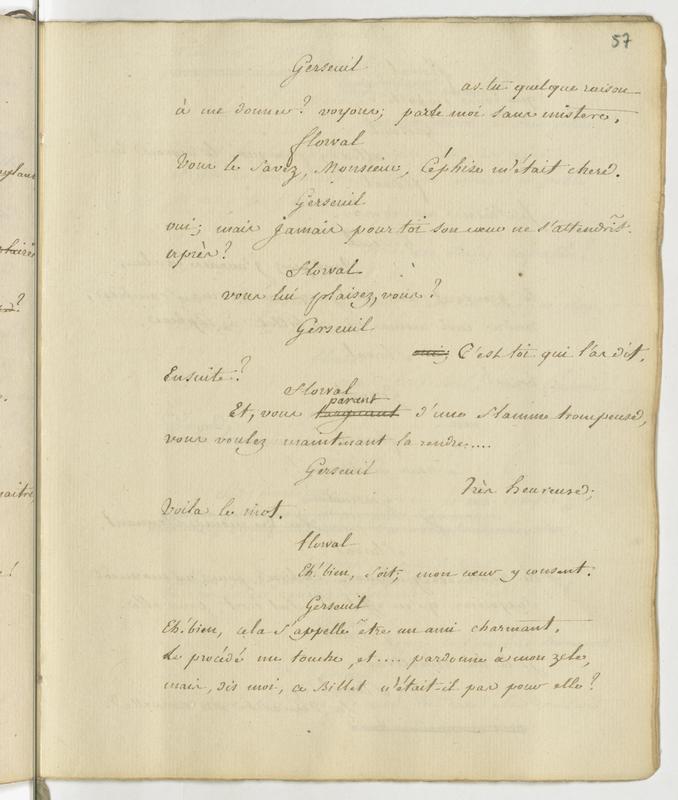 57
Gerseuil
as-tu quelque raison
à me donner? voyons; parle moi sans mistere,
Florval
Vous le Savez, Monsieur, Céphise m'était chere.
Gerseuil
oui; mais jamais pour toi son cœur ne s'attendrit.
après?
Florval
vous lui plaisez, vous?
Gerseuil
oui; C'est toi qui l'as dit.
Ensuite?
Florval
parant
Et, vous d'une flamme trompeuse,
vous voulez maintenant la rendre....
Gerseuil
très heureuse;
Voila le mot.
florval
Eh! bien, soit; mon cœur y consent.
Gerseuil
Eh! bien, cela S'appelle être un ami charmant.
Le procédé me touche, et.... pardonne à mon zele,
mais, dis moi, ce Billet n'était-il pas pour elle?